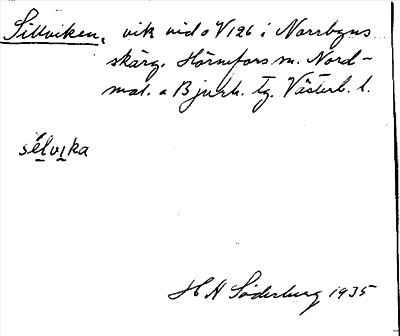 Sillviken, vik vid o V126 i Norrbyns
skärg. Hörnefors sn. Nord-
mal. o Bjurh. tg. Västerb. l.
sélvika
H A Söderberg 1935